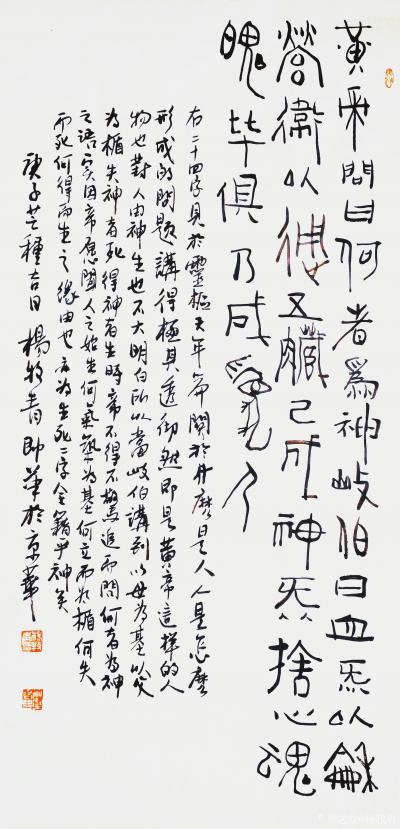 黄帝問曰何者為神岐伯曰血炁以龢
營衛以通五臟已成神炁捨心魂
魄毕俱乃成為人
右二十四字見於靈樞天年篇關於什麼是人人是怎麼
形成的問題講得極其透彻然即是黄帝這樣的人
物也對人由神生也不大明白所以當岐伯講到以母為基以父
為楯失神者死得神者生時帝不得不驚追而問何者為神
之語实因帝愿聞人之始生何氣築為基何立而為楯何失
而死何得而生之缘由也言為生死二字全籍乎神矣
庚子芒種吉日楊牧青即筆於京華